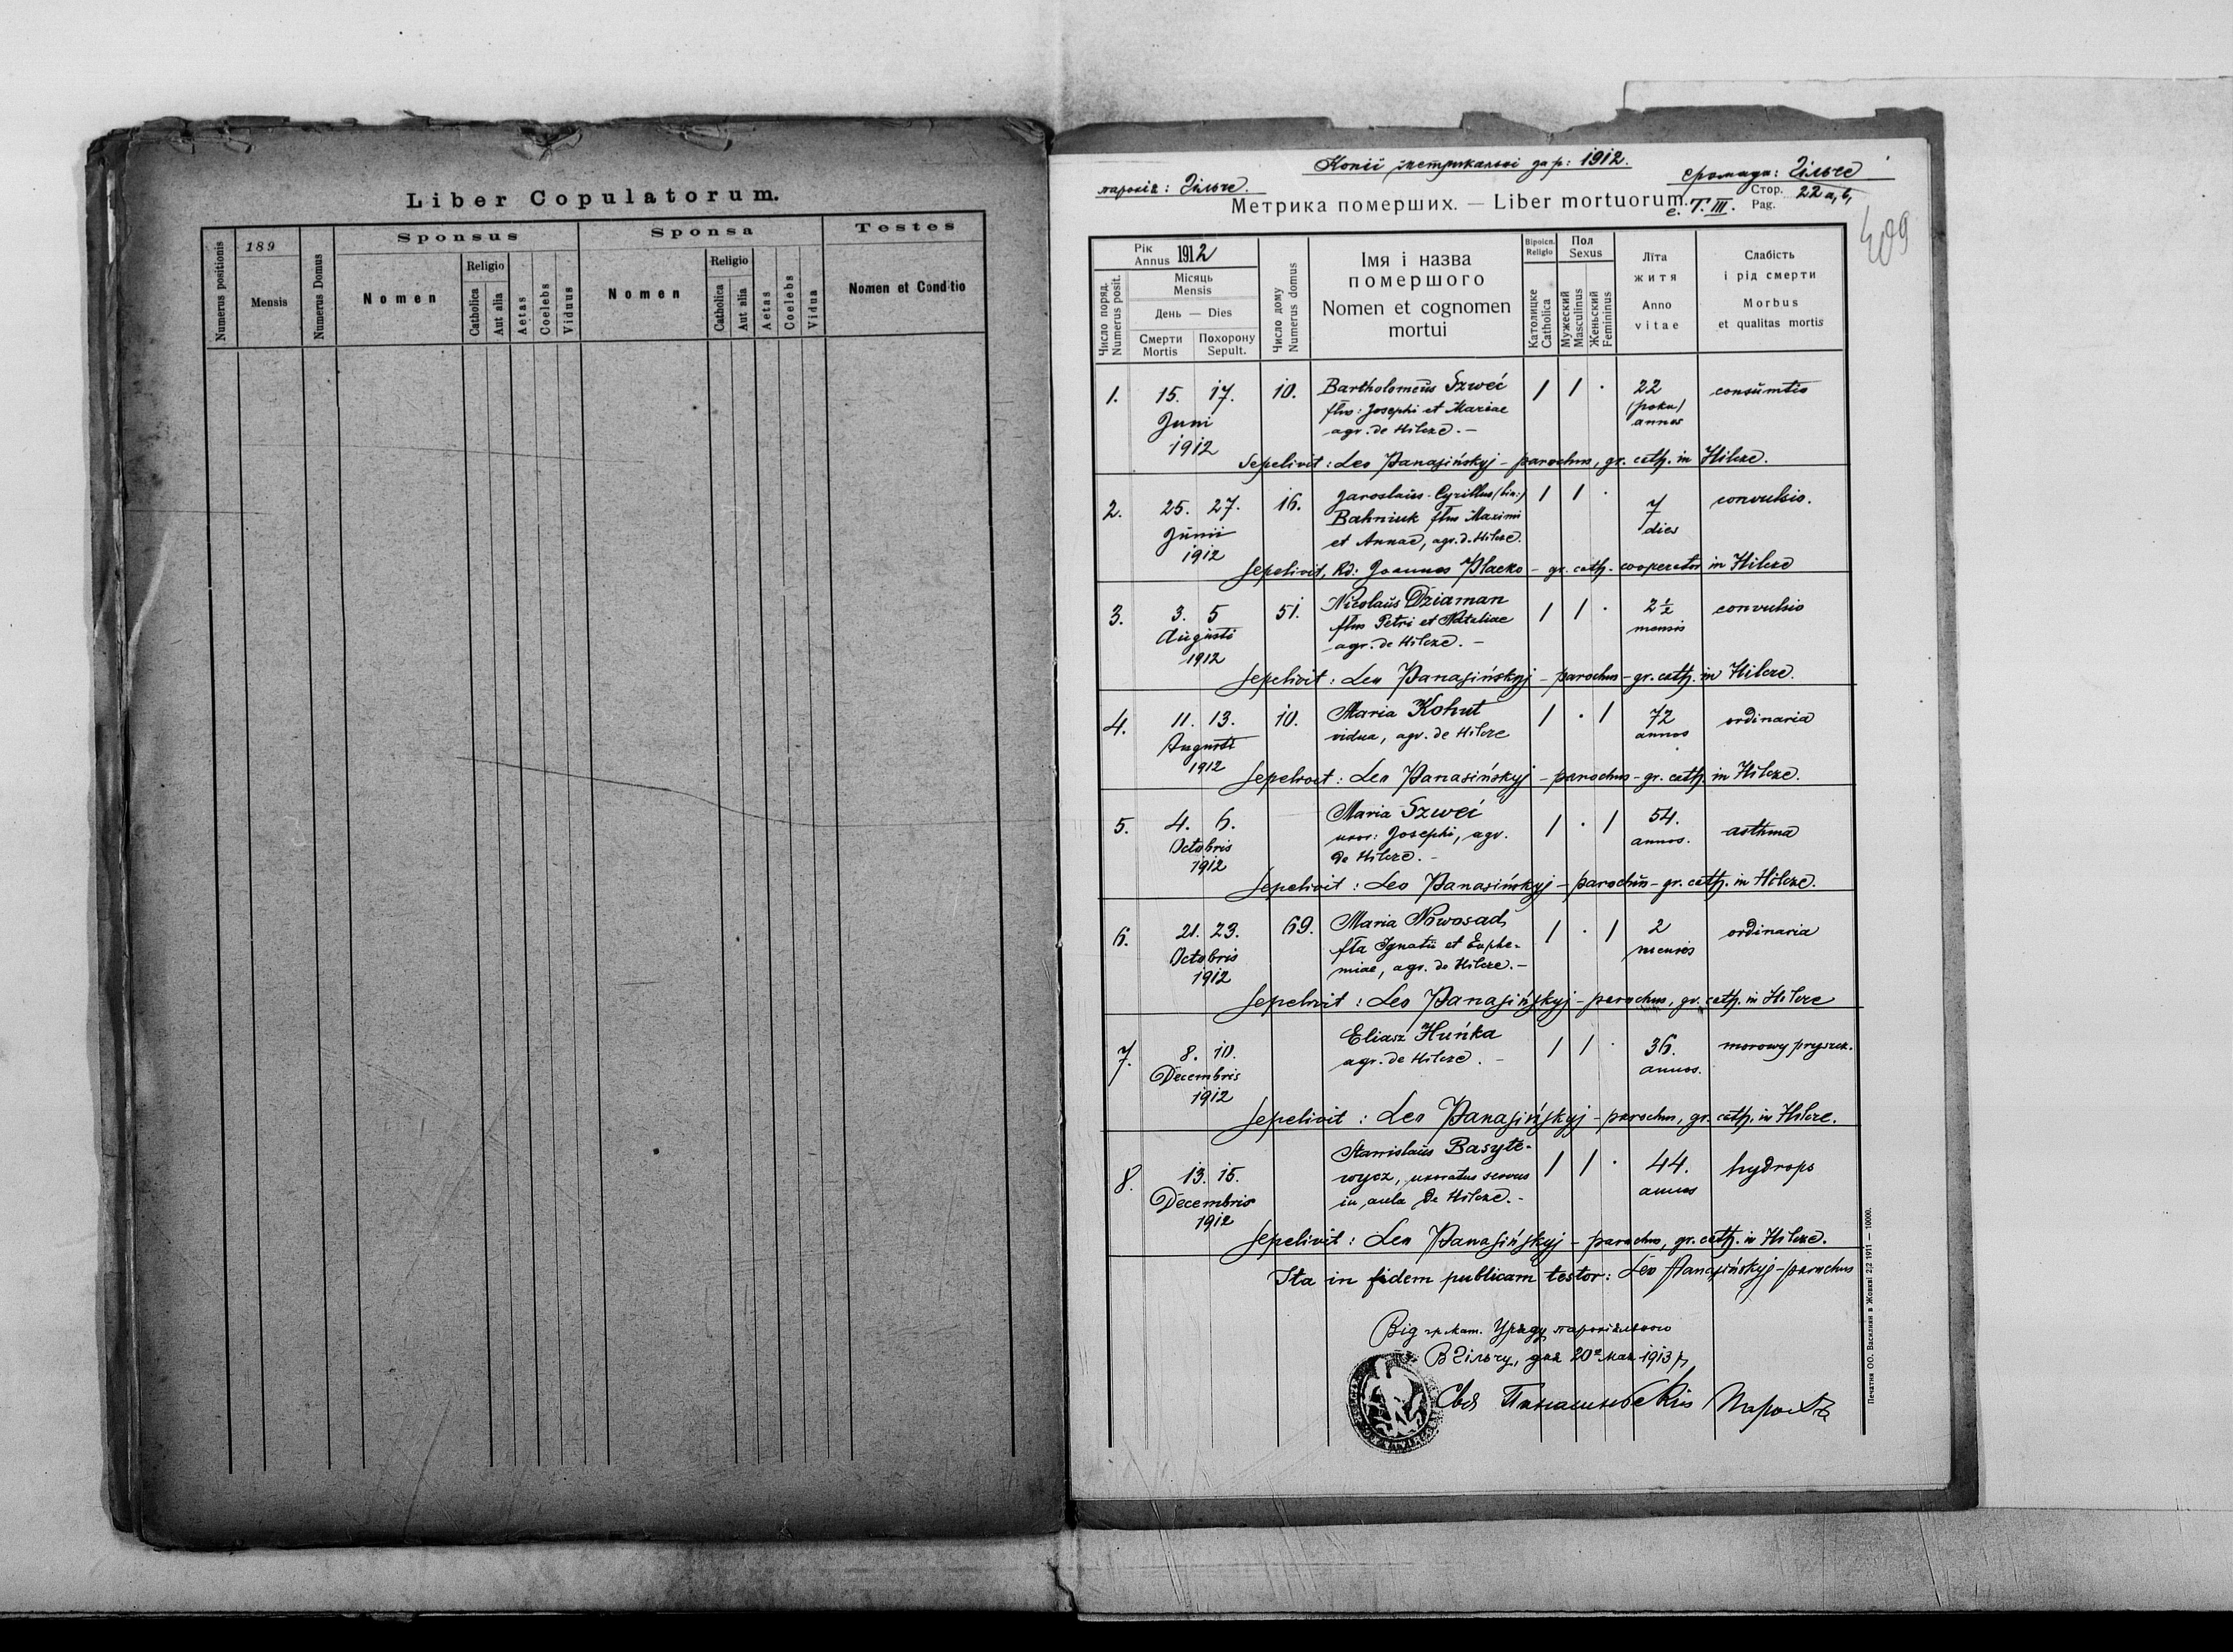 Liber Copulatorum.
Numerus positionis
189
Mensis
Numerus Domus
Sponsus
Nomen
Religio
Catholica
Aut alia
Aetas
Coelebs
Viduus
Sponsa
Nomen
Religio
Catholica
Aut alia
Aetas
Coelebs
Vidua
Testes
Nomen et Conditio
Копії метрикальні за р: 1912.
парохія: Гільче.
громада: Гільче
Метрика померших. — Liber mortuorum.
с. T. III.
Стор.
Pag.
22 a, b,
409
Число поряд.
Numerus posit.
Рік
Annus 1912
Місяць
Mensis
День — Dies
Смерти
Mortis
Похорону
Sepult.
Число дому
Numerus domus
Імя і назва
помершого
Nomen et cognomen
mortui
Віроісп.
Religio
Католицке
Catholica
Пол
Sexus
Мужеский
Masculinus
Женьский
Femininus
Літа
житя
Anno
vitae
Слабість
і рід смерти
Morbus
et qualitas mortis
1. 15. 17. 10. Bartholomeus Szweć 1 1 · 22 consumtio
Juni flus: Josephi et Mariae (роки)
1912 agr. de Hilcze. — annos
Sepelivit: Leo Panasińskyj - parochus, gr. cath. in Hilcze.
2. 25. 27. 16. Jaroslaus-Cyrillus (bin:) 1 1 · 7 convulsio.
Junii Bahniuk flus Maximi dies
1912 et Annae, agr. d. Hilcze.
Sepelivit, Rd: Joannes Placko - gr. cath. cooperator in Hilcze
3. 3. 5 51. Nicolaus Dziaman 1 1 · 2 ½ convulsio
Augusti flus Petri et Nataliae mensis
1912 agr. de Hilcze. —
Sepelivit: Leo Panasińskyj - parochus - gr. cath. in Hilcze.
4. 11. 13. 10. Maria Kohut 1 · 1 72 ordinaria
Augusti vidua, agr. de Hilcze annos
1912
Sepelivit: Leo Panasińskyj - parochus - gr. cath. in Hilcze.
5. 4. 6. Maria Szweć 1 · 1 54. asthma
Octobris uxor: Josephi, agr. annos.
1912 de Hilcze. —
Sepelivit: Leo Panasińskyj - parochus - gr. cath. in Hilcze.
6. 21. 23. 69. Maria Nowosad, 1 · 1 2 ordinaria
Octobris fla Ignatii et Euphe- menses
1912 miae, agr. de Hilcze. —
Sepelivit: Leo Panasińskyj - parochus, gr. cath. in Hilcze
7. 8. 10. Eliasz Huńka 1 1 · 36. morowy pryszcz.
Decembris agr. de Hilcze. — annos.
1912
Sepelivit: Leo Panasińskyj - parochus, gr. cath. in Hilcze.
8. 13. 15. Stanislaus Basyte- 1 1 · 44. hydrops
Decembris wycz, uxoratus servus annos
1912 in aula de Hilcze. -
Sepelivit: Leo Panasińskyj - parochus, gr. cath. in Hilcze.
Ita in fidem publicam testor: Leo Panasińskyj - parochus
Від гр. кат. Уряду парохіяльного
В Гільчу, дня 20го мая 1913 р,
Панасиньскій Парохъ
Печатня ОО. Василиян в Жовкві 2|2 1911 — 10000.